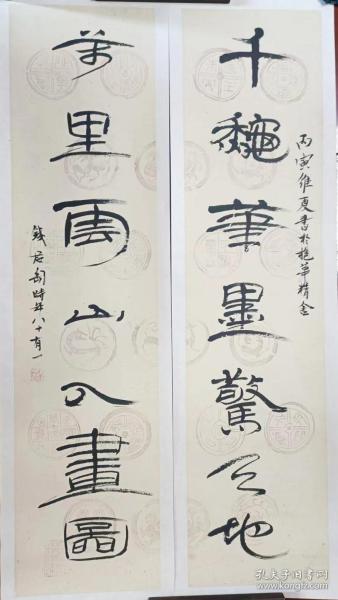 千龝筆墨驚天地
丙寅維夏書於抱華精舍
萬里雲山入畫圖
錢君匋時年八十有一
孔夫子旧书网